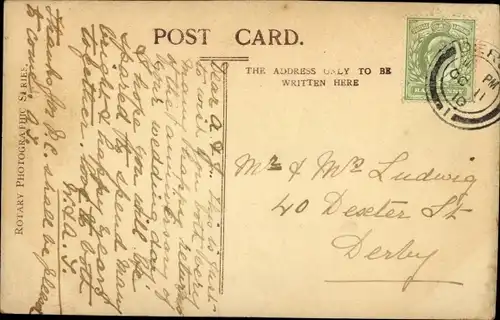 POST CARD.
THE ADDRESS ONLY TO BE
WRITTEN HERE
ROTARY PHOTOGRAPHIC SERIES.
Dear A & L. This is just
to wish you both very
many happy returns
of the anniversary of
your wedding day.
I hope you will be
spared to spend many
bright & happy years
together. Love to both
Thanks for P.C. shall be pleased
to come.
Mr & Mrs Ludwig
40 Dexeter St
Derby
DERBY
PM
OC 11
10